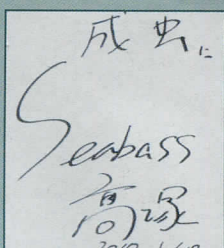 成虫に
Seabass
高塚